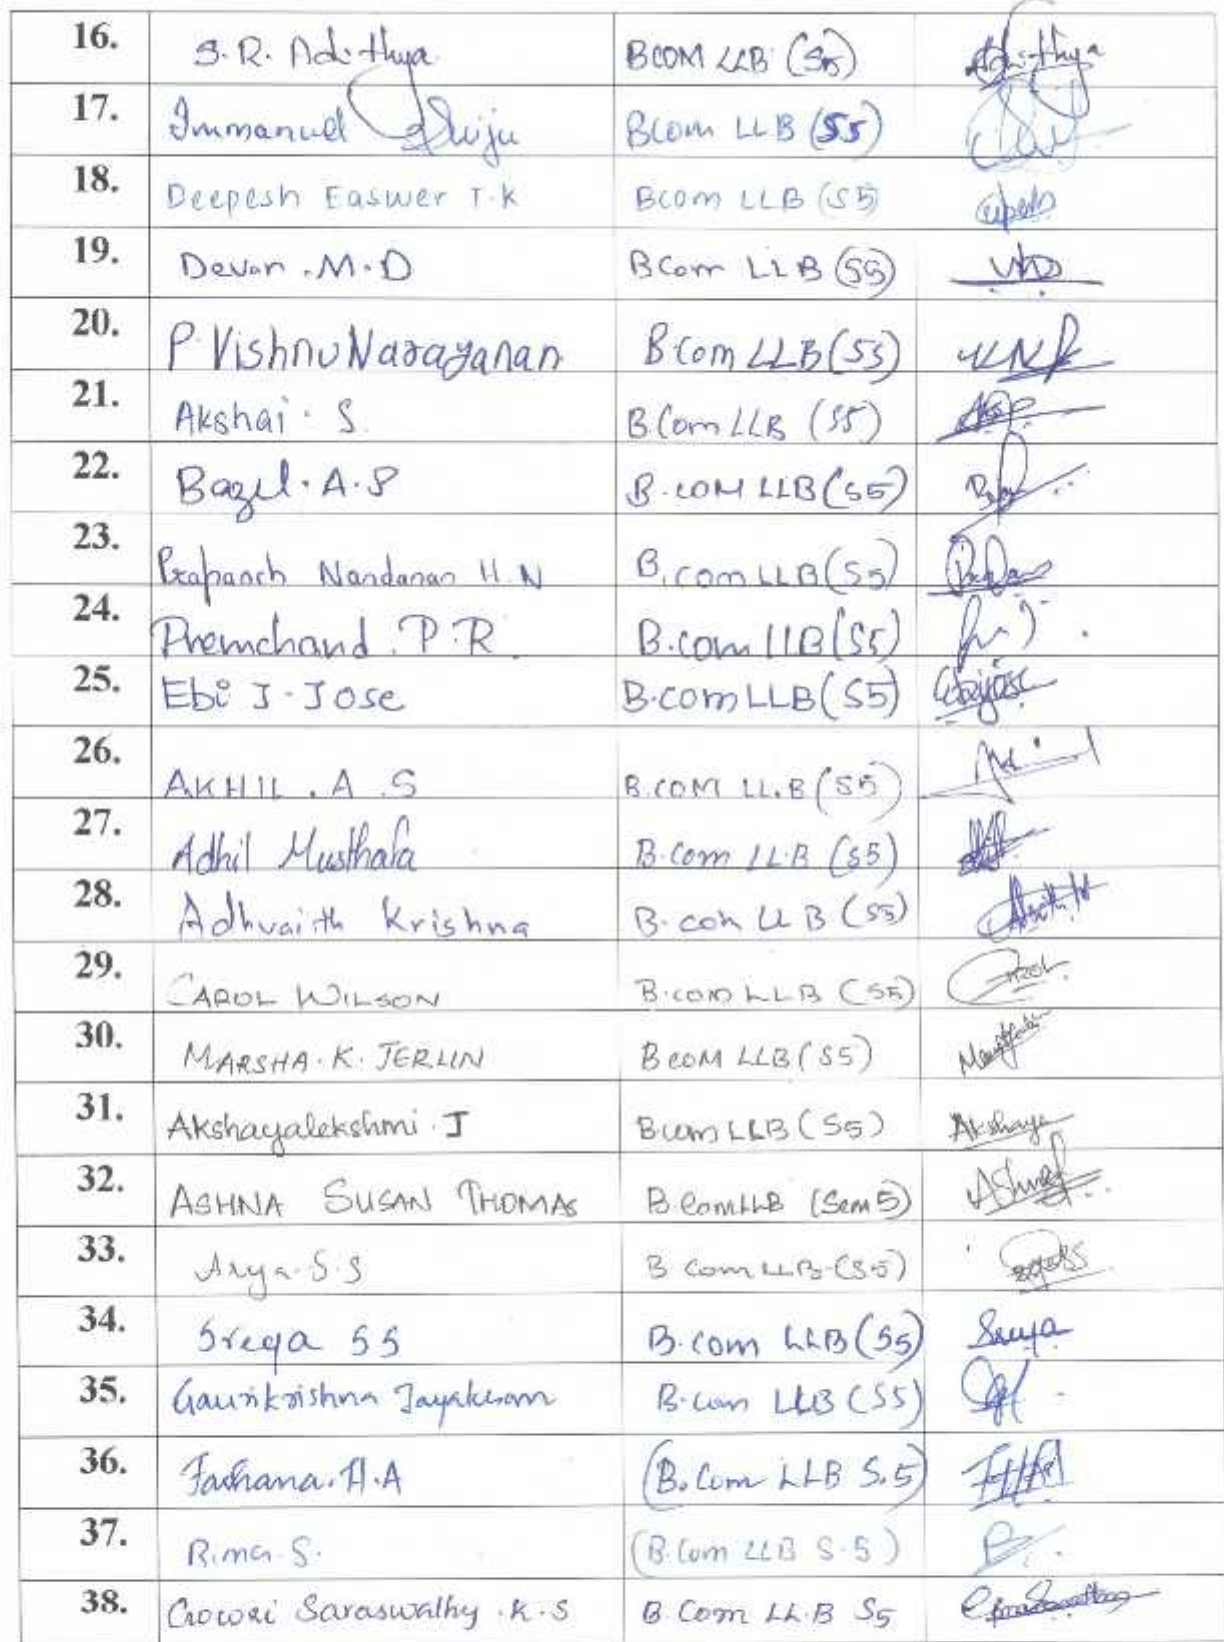 16. S.R. Adithya BCOM LLB (S5) Adhithya
17. Immanuel Shiju BCom LLB (S5)
18. Deepesh Easwer T.K BCom LLB (S5
19. Devan .M.D BCom LLB (S5)
20. P Vishnu Narayanan B.Com LLB (S5) VNP
21. Akshai . S. B.Com LLB (S5)
22. Bazil. A.S B.COM LLB (S5)
23. Prapanch Nandanan H.N B.com LLB (S5)
24. Premchand. P.R B.com LLB (S5)
25. Ebi J. Jose B.com LLB (S5) Ebyjose
26. AKHIL . A .S B.COM LL.B (S5)
27. Adhil Musthafa B.Com LL.B (S5)
28. Adhvaith Krishna B.com LLB (S5)
29. CAROL WILSON B.com LLB (S5) Carol
30. MARSHA.K. JERLIN BCOM LLB (S5)
31. Akshayalekshmi. J Bcom LLB (S5) Akshaya
32. ASHNA SUSAN THOMAS B.Com LLB (Sem 5) Ashna
33. Arya. S.S B Com LLB (S5)
34. Sreya SS B.com LLB (S5) Sreya
35. Gaurikrishna Jayakumar B.com LLB (S5)
36. Farhana. H.A (B.Com LLB S.5)
37. Rima. S. (B.Com LLB S.5)
38. Gowri Saraswathy .K.S B.Com LL.B S5